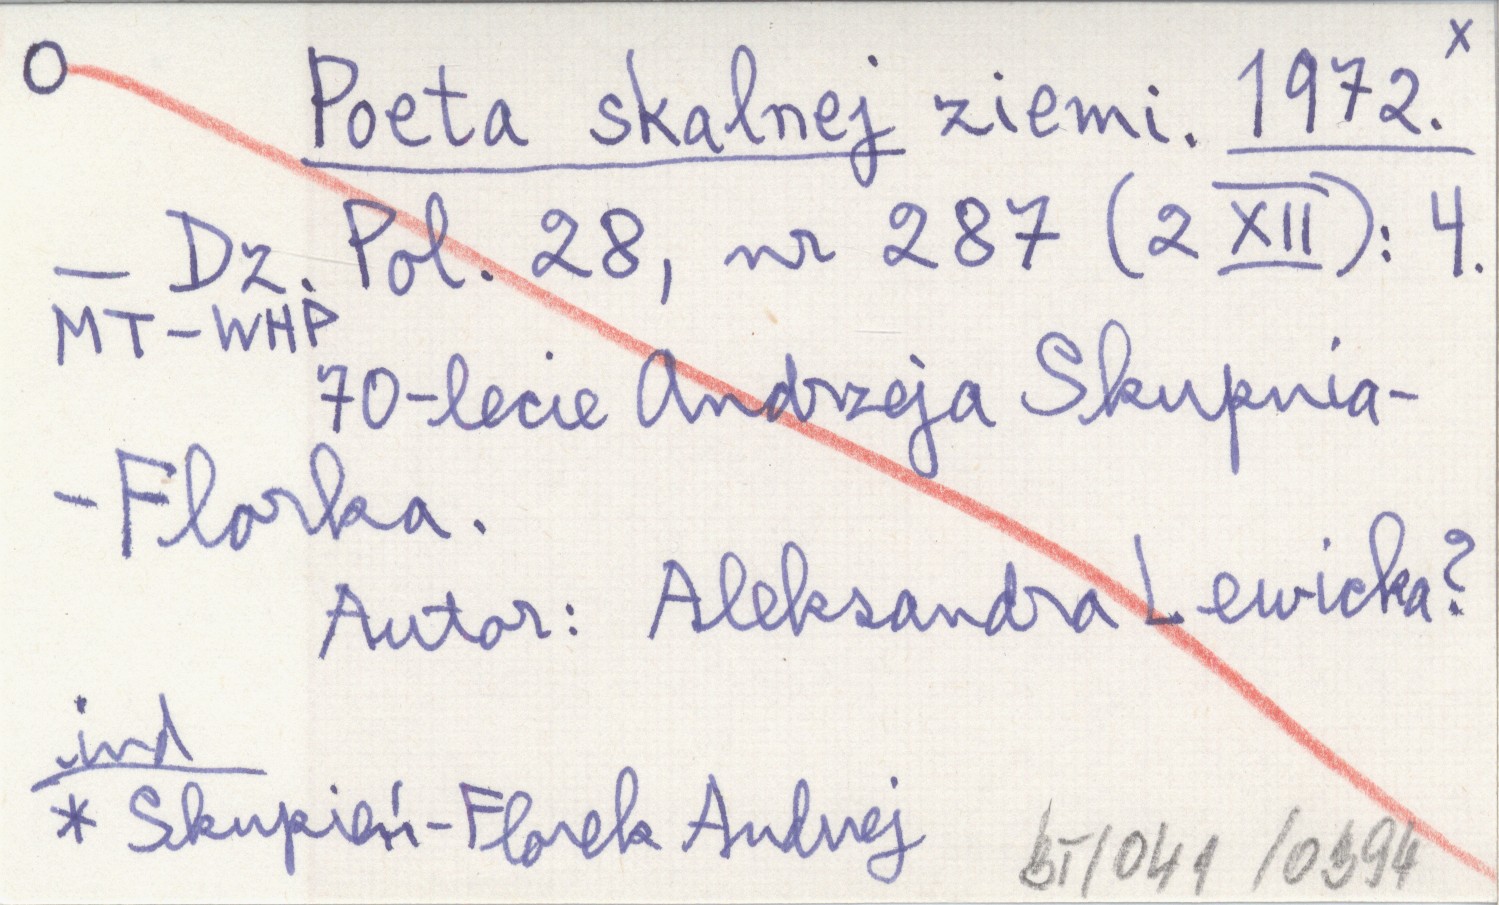 O Poeta skalnej ziemi. 1972. x
— Dz. Pol. 28, nr 287 (2 XII): 4.
MT-WHP
70-lecie Andrzeja Skupnia-
-Florka.
Autor: Aleksandra Lewicka?
ind
* Skupień-Florek Andrzej
/041 /0394